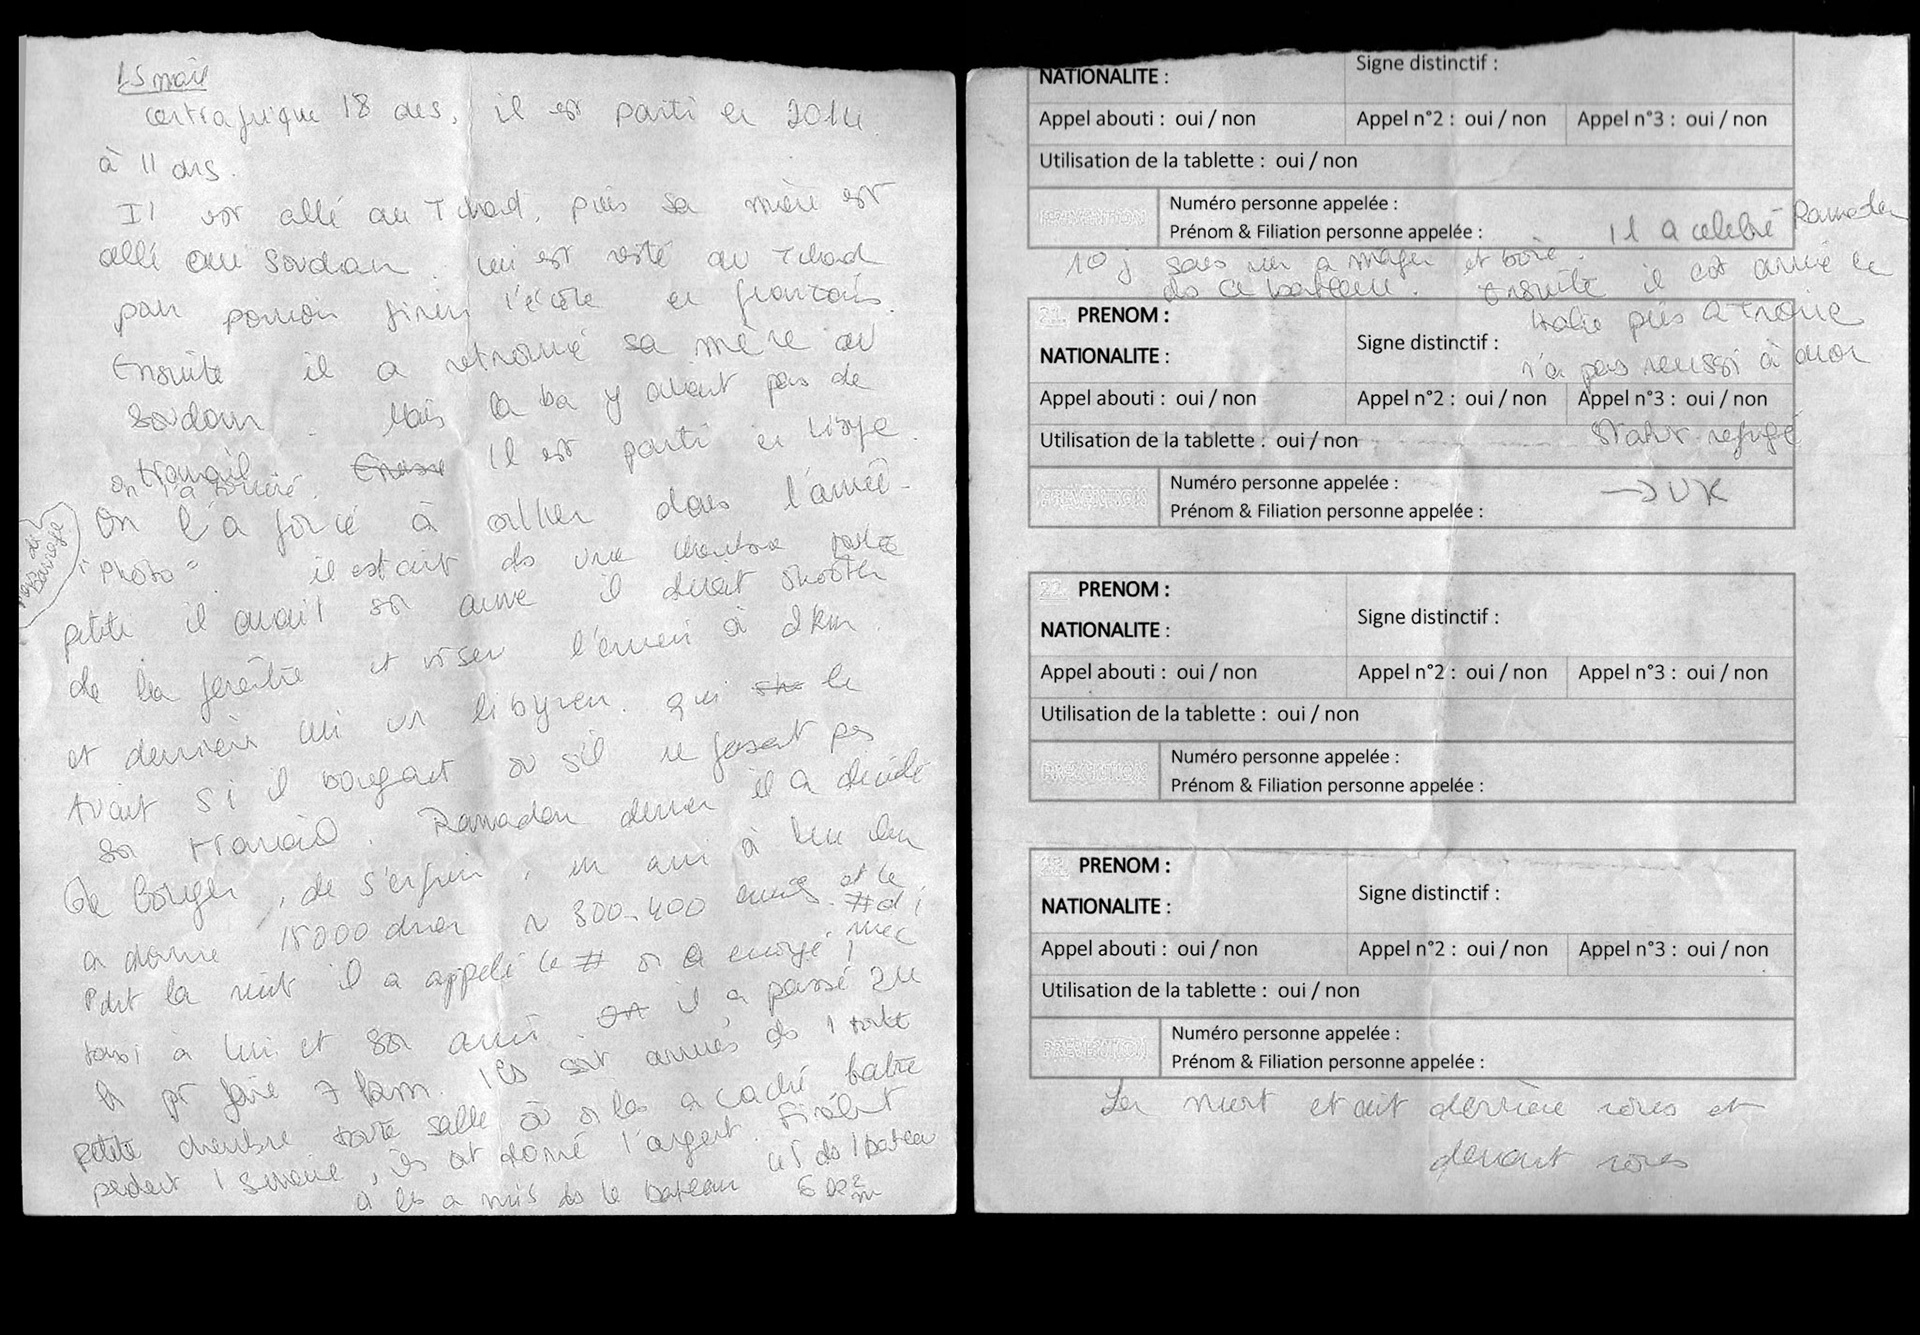 Ismail
centrafrique 18 ans, il est parti en 2014
à 11 ans.
Il est allé au Tchad, puis sa mère est
allé au Soudan. lui est resté au Tchad
pour pouvoir finir l'école en français.
Ensuite il a retrouvé sa mère au
Soudan. Mais la ba y avait pas de
travail Il est parti en Libye.
on l'a
On l'a forcé à aller dans l'armée.
"Photo" il était ds une chambre toute
petite il avait son arme il devait shooter
de la fenêtre et viser l'ennemi à 2 km.
et derrière lui un libyien. qui le
tuait si il bougeait ou s'il ne faisait pas
son travail. Ramadan dernier il a décidé
de bouger, de s'enfuir, un ami à lui
a donné 15000 dinar ~ 300-400 euros. et le # d'1
Pdt la nuit il a appelé le # on a envoyé 1 mec
taxi à lui et son ami. il a passé 24
h pr faire 7 km. Ils sont arrivés ds 1 toute
petite chambre toute salle où on les a caché
pendant 1 semaine, ils ont donné l'argent. Finalement
à les a mis ds le bateau 45 ds 1 bateau
NATIONALITE : Signe distinctif :
Appel abouti : oui / non Appel n°2 : oui / non Appel n°3 : oui / non
Utilisation de la tablette : oui / non
PREVENTION Numéro personne appelée :
Prénom & Filiation personne appelée : Il a célébré Ramadan
10 j sans rien a manger et boire.
ds ce bateau. Ensuite il est arrivé en
21. PRENOM : Italie puis
NATIONALITE : Signe distinctif : n'a pas reussi à avoir
Appel abouti : oui / non Appel n°2 : oui / non Appel n°3 : oui / non
Utilisation de la tablette : oui / non Statut refugié
PREVENTION Numéro personne appelée : → UK
Prénom & Filiation personne appelée :
22. PRENOM :
Signe distinctif :
NATIONALITE :
Appel abouti : oui / non Appel n°2 : oui / non Appel n°3 : oui / non
Utilisation de la tablette : oui / non
PREVENTION Numéro personne appelée :
Prénom & Filiation personne appelée :
23. PRENOM :
Signe distinctif :
NATIONALITE :
Appel abouti : oui / non Appel n°2 : oui / non Appel n°3 : oui / non
Utilisation de la tablette : oui / non
PREVENTION Numéro personne appelée :
Prénom & Filiation personne appelée :
La mort etait derrière nous et
devant nous